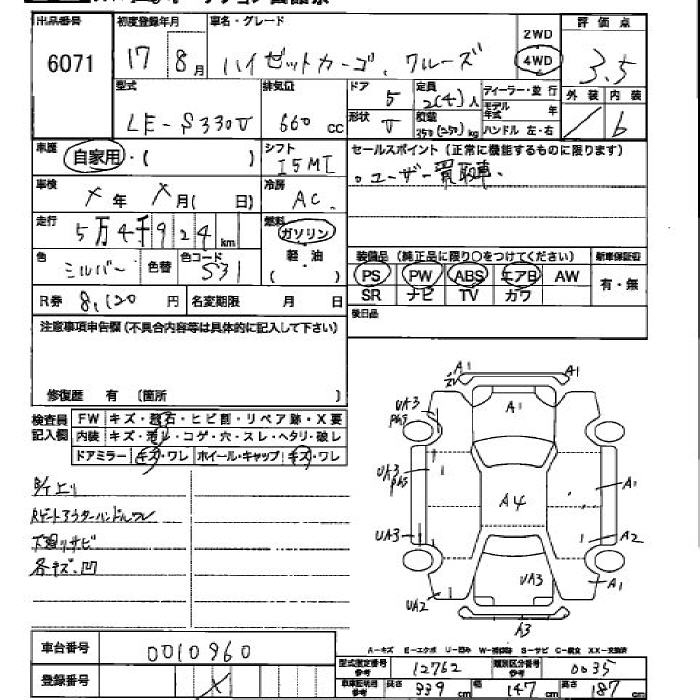 出品番号 初度登録年月 車名・グレード 2WD 評価点
6071 17 8月 ハイゼットカーゴ、クルーズ 4WD 3.5
型式 排気量 ドア 5 定員 2(4)人 ディーラー・並行 外装 内装
LE-S330V 660 cc 形状 V 積載 350(250)kg モデル年式 年 ハンドル 左・右 6
車歴 自家用・( ) シフト I5MT セールスポイント(正常に機能するものに限ります)
車検 X年 X月( 日) 冷房 AC 。ユーザー買取車、
走行 5万4千924km 燃料 ガソリン
色 シルバー 色替 色コード S31 軽・油 ( ) 装備品(純正品に限り○をつけてください) 新車保証書
PS PW ABS エアB AW 有・無
R券 8,120円 名変期限 月 日 SR ナビ TV カワ
後日品
注意事項申告欄(不具合内容等は具体的に記入して下さい)
修復歴 有 (箇所 )
検査員記入欄 FW キズ・飛石・ヒビ割・リペア跡・X要
内装 キズ・汚レ・コゲ・穴・スレ・ヘタリ・破レ
ドアミラー キズ・ワレ ホイール・キャップ キズ・ワレ
Rゲートアウターハンドルワレ
下廻リサビ
各キズ、凹
A1 A1
UA3 A1
UA3 A4 A1
UA3 A2
UA3 A1
UA2
A3
A-キズ E-エクボ U-凹み W-補修跡 S-サビ C-腐食 XX-交換済
車台番号 0010960
型式指定番号 参考 12762 類別区分番号 参考 0035
登録番号 X
車車証明書 参考 長さ 339cm 幅 147cm 高さ 187cm